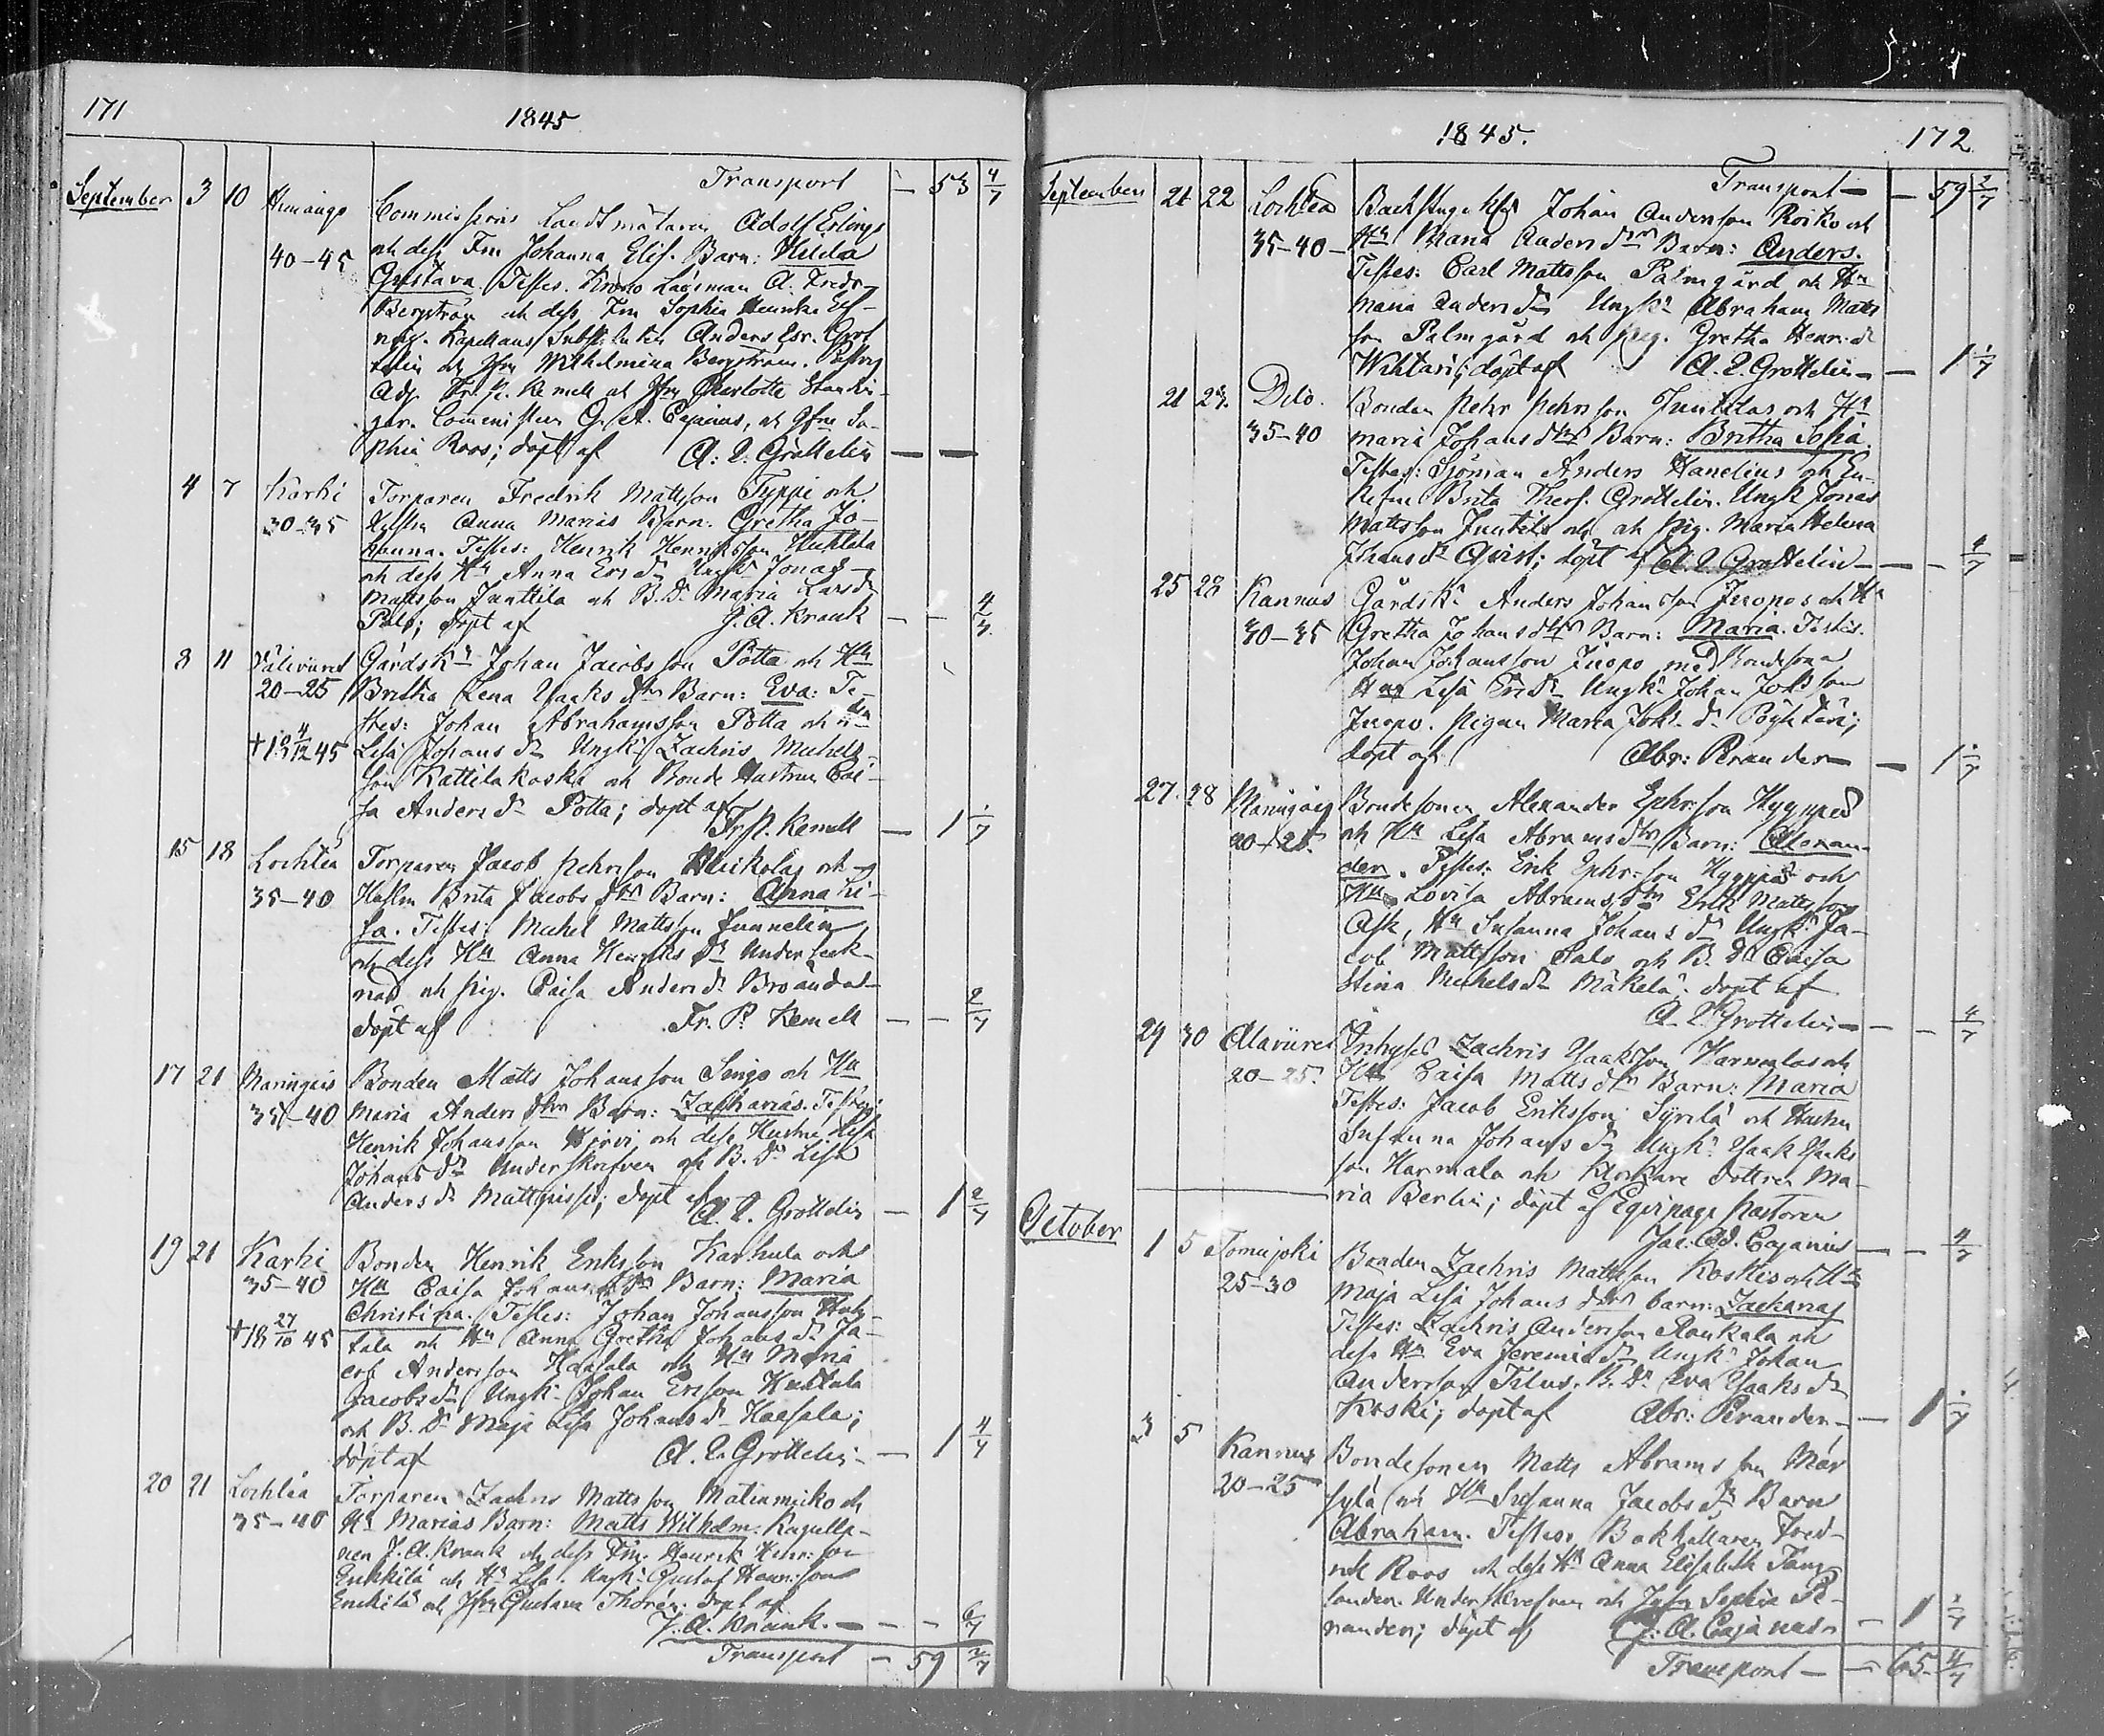 171
1845
Transport — 53 4/7
September 3 10 Himango Commissions Landtmätaren Adolf Erling
40-45 och dess Fru Johanna Elis. Barn: Hilda
Gustava Testes. Krono Länsman A. Fredr
Bergström och dess Fru Sophia
Kapellans Substituten Anders Esr. Grot
telin och Jfru Wilhelmina Bergström.
Adj. Fr. P. Kemell och Jfru Charlotte
Comministern G. A. Cajanus, och Jfru So-
phia Roos; döpt af A: L. Grottelin — —
4 7 Karhi Torparen Fredrik Mattsson Typpi och
30-35 Hustru Anna Marias Barn. Gretha Jo-
hanna. Testes: Henrik Henriksson Huhtala
och dess Hu Anna Ers dr Ungk. Jonas
Mattsson Junttila och B. Dr Maria Lars dr
Palo; döpt af J. A. Krank — — 4/7
8 11 Gårdsk. Johan Jacobsson Potta och Hu
20-25 Britha Lena Isaks dtrs Barn: Eva: Te-
stes: Johan Abrahamsson Potta och Hu
†18 4/12 45 Lisa Johans dr Ungk. Zachris Michels
son Kattilakoski och Bonde Hustrun Cai-
sa Anders dr Potta; döpt af
Fr. P. Kemell — 1 1/7
15 18 Lochteå Torparen Jacob Pehrsson och
35-40 Hustru Brita Jacobs dtrs Barn: Anna Li-
sa. Testes: Michel Mattsson Junnelin
och dess Hu Anna Henriks dr Underteck-
nad och pig. Caisa Anders dr Broända
döpt af Fr. P. Kemell — — 2/7
17 21 Maringais Bonden Matts Johansson Singo och Hu
35-40 Maria Anders dtrs Barn: Zacharias. Testes:
Henrik Johansson Hirvi och dess Hustru Lisa
Johans dr Underskrifven och B. Dr Lisa
Anders dr döpt af A. L. Grottelin — 1 2/7
19 21 Karhi Bonden Henrik Eriksson Karhula och
35-40 Hu Caisa Johans dtrs Barn: Maria
Christina. Testes: Johan Johansson Huh-
†18 27/10 45 tala och Hu Anna Gretha Johans dr Ja-
cob Andersson Haapala och Hu Maria
Jacobs dr Ungk. Johan Ersson Huhtala
och B. Dr Maja Lisa Johans dr Haapala;
döpt af A. L. Grottelin — 1 4/7
20 21 Lochteå Torparen Zachris Mattsson och
35-40 Hu Marias Barn: Matts Wilhelm. Kapella-
nen J. A. Krank och dess Fru. Henrik Henr: son
Erikkilä och Hu Lisa. Ungk. Gustaf Henr: son
Erikkilä och Jfru Gustava Thoren. döpt af
J. A. Krank. — — 6/7
Transport — 59 2/7
1845.
172
Transport — 59 2/7
September 21 22 Lochteå Johan Andersson Roiko och
35-40 Hu Maria Anders dtrs Barn: Anders.
Testes: Carl Mattsson Palmgård och Hu
Maria Anders dr Ungk. Abraham Matts
son Palmgård och pig. Gretha Henr. dr
döpt af A. L. Grottelin — 1 1/7
21 23. Dito. Bonden Pehr Pehrsson Junttilas och Hu
35-40 Maria Johans dtrs Barn: Britha Sofia.
Testes: Sjöman Anders Hanelius och En-
kefru Brita Theres. Grottelin. Ungk. Jonas
Mattsson Junttila och pig. Maria Helena
Johans dr Qvist; döpt af A. L. Grottelin — — 4/7
25 28 Kannus Gårdsk. Anders Johansson Juopos och Hu
30-35 Gretha Johans dtrs Barn: Maria. Testes.
Johan Johansson Juopo med
Hu Lisa Ers dr Ungk. Johan Joh. son
Juopo. Pigan Maria Joh. dr
döpt af Abr: Perander — 1 1/7
27. 28 Maringais Bondesonen Alexander Ephr: son Hyyppäs
20-25. och Hu Lisa Abrams dtrs Barn: Alexan-
der. Testes: Erik Ephr: son Hyyppä och
Hu Lovisa Abrams dr Erik Mattsson
Ask, Hu Susanna Johans dr Ungk. Ja-
cob Mattsson Palo och B. Dr Caisa
Stina Michels dr Mäkelä. döpt af
A. L. Grottelin — — 4/7
29 30 Alaviirre Inhyses Zachris Isaksson Harmalas och
20-25. Hu Caisa Matts dtrs Barn: Maria
Testes: Jacob Eriksson Syrilä och Hustru
Susanna Johans dr Ungk. Isaak Isaks
son Harmala och Klockare dottren Ma-
ria Berlin; döpt af Eqvipage Pastoren
Jac. Ad. Cajanus — — 4/7
October 1 5 Tomujoki Bonden Zachris Mattsson Koskis och Hu
25-30 Maja Lisa Johans dtrs barn: Zacharias
Testes: Zachris Andersson Raukala och
dess Hu Eva Jeremias dr Ungk. Johan
Andersson Tilus. B. Dr Eva Isaks dr
Koski; döpt af Abr: Perander — 1 1/7
3 5 Kannus Bondesonen Matts Abramsson Mär
20-25 sylä och Hu Susanna Jacobs dr Barn
Abraham. Testes: Bokhållaren Fred-
rik Roos och dess Hu Anna Elisabeth Fang
lander. Underskrefven och Jfru Sophia Pe-
rander; döpt af G. A. Cajanus — 1 2/7
Transport — 65 4/7